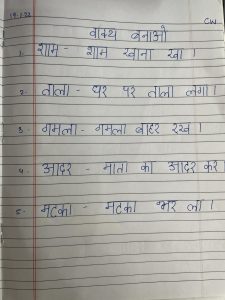 CW
वाक्य बनाओ
1. शाम - शाम खाना खा।
2. ताला - घर पर ताला लगा।
3. गमला - गमला बाहर रख।
4. आदर - माता का आदर कर।
5. मटका - मटका भर ला।